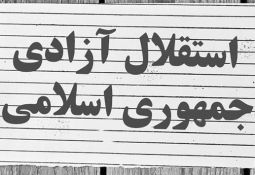 استقلال آزادی
جمهوری اسلامی